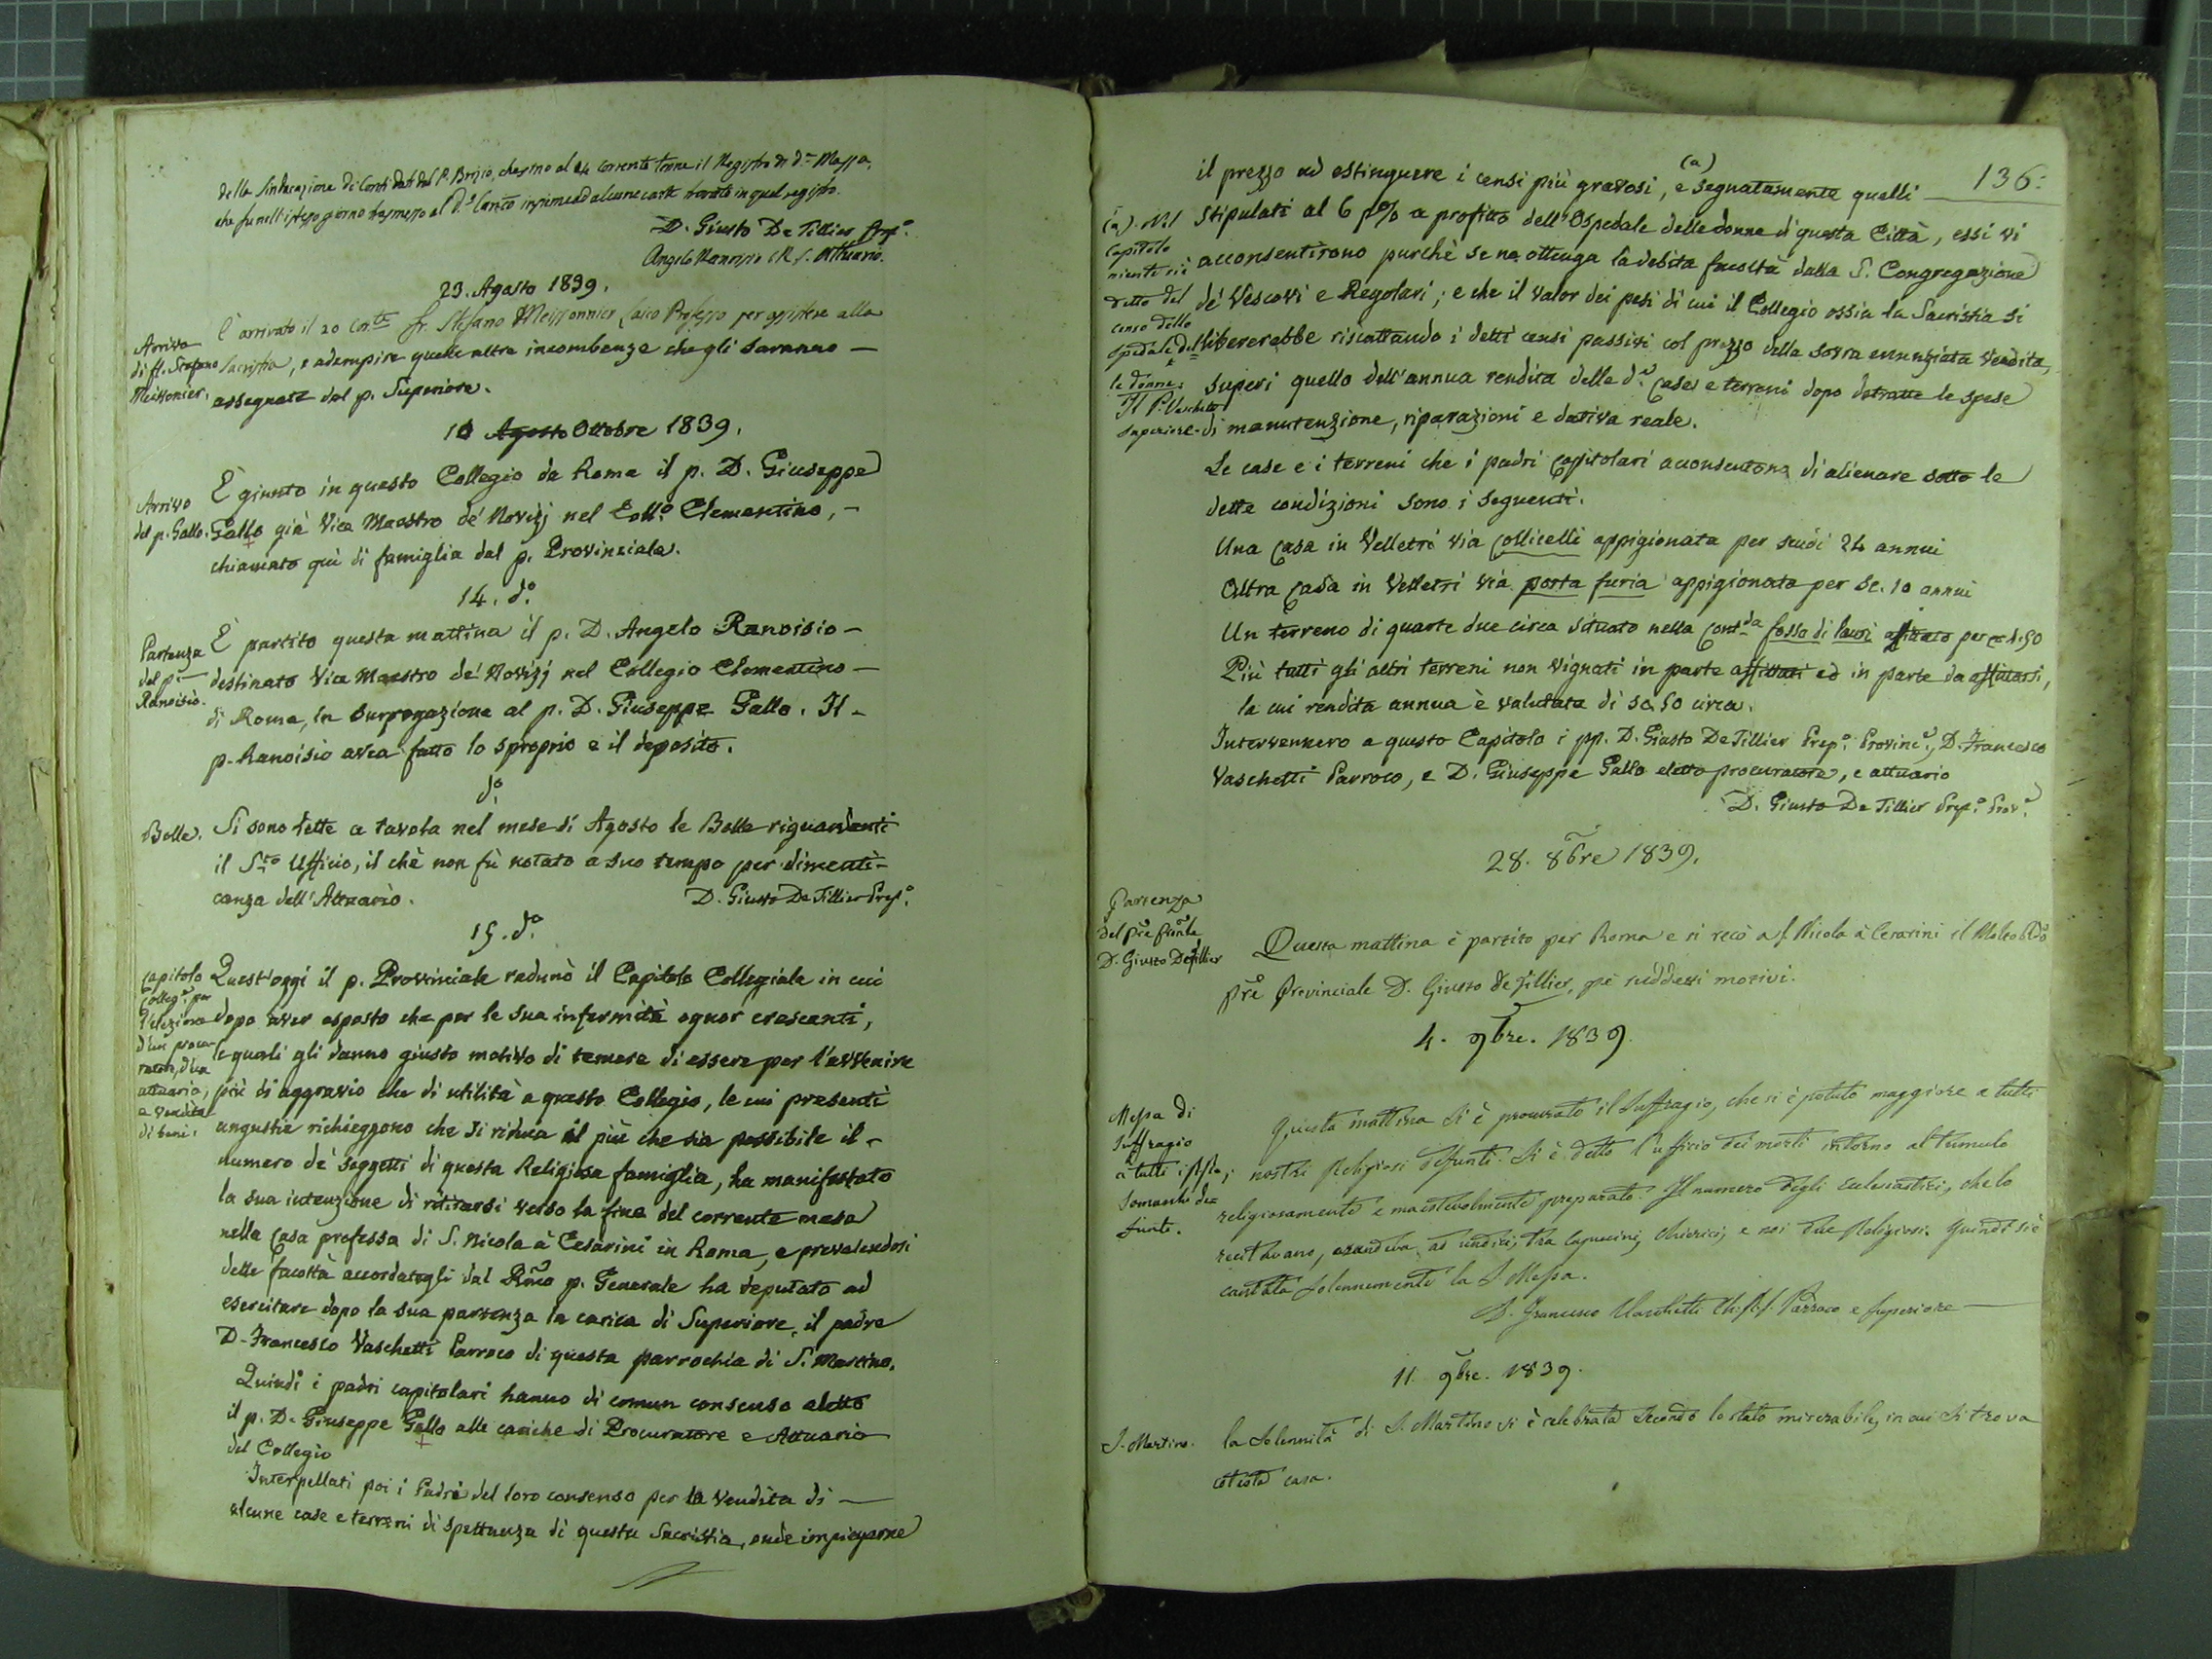 della Sindacazione di Conti dati dal P. Brisio, che sino al 24 corrente tenne il Registro di d.e Messe,
che fu nell'istesso giorno trasmesso al d.o Conto insieme ad alcune carte trovate in quel registro.
D. Giusto De Tillier Prep.o
Angelo Ranoisio C.R.S. Attuario.
23. Agosto 1839.
Arrivo
di fr. Stefano
Meissonier.
È arrivato il 20 cor.te fr. Stefano Meissonnier Laico Professo per assistere alla
Sacristia, e adempire quelle altre incombenze che gli saranno —
assegnate dal p. Superiore.
10 Agosto Ottobre 1839.
Arrivo
del p. Gallo.
È giunto in questo Collegio da Roma il p. D. Giuseppe
Gallo già Vice Maestro de' Novizj nel Coll.o Clementino, –
chiamato quì di famiglia dal p. Provinciale.
14. d.o
Partenza
del p. —
Ranoisio.
È partito questa mattina il p. D. Angelo Ranoisio –
destinato Vice Maestro de' Novizj nel Collegio Clementino —
di Roma, in surrogazione al p. D. Giuseppe Gallo. Il –
p. Ranoisio avea fatto lo sproprio e il deposito.
d.o
Bolle.
Si sono lette a tavola nel mese di Agosto le Bolle riguardanti
il S.to Ufficio, il chè non fù notato a suo tempo per dimenti-
canza dell'Attuario.
D. Giusto De Tillier Prep.o
15. d.o
Capitolo
Colleg.e per
l'elezione
d'un procu-
ratore, d'un
attuario,
e vendita
di beni.
Quest'oggi il p. Provinciale radunò il Capitolo Collegiale in cui
dopo aver esposto che per le sue infermità ognor crescenti,
le quali gli danno giusto motivo di temere di essere per l'avvenire
più di aggravio che di utilità a questo Collegio, le cui presenti
angustie richieggono che si riduca il più che sia possibile il –
numero de' soggetti di questa Religiosa famiglia, ha manifestato
la sua intenzione di ritirarsi verso la fine del corrente mese
nella Casa professa di S. Nicola à Cesarini in Roma, e prevalendosi
delle facoltà accordategli dal Rmo p. Generale ha deputato ad
esercitare dopo la sua partenza la carica di Superiore, il padre
D. Francesco Vaschetti Parroco di questa parrochia di S. Martino.
Quindi i padri capitolari hanno di comun consenso eletto
il p. D. Giuseppe Gallo alle cariche di Procuratore e Attuario
del Collegio
Interpellati poi i Padri del loro consenso per la vendita di —
alcune case e terreni di spettanza di questa Sacristia, onde impiegarne
136.
il prezzo ad estinguere i censi più gravosi, (a) e segnatamente quelli
stipulati al 6 p% a profitto dell'Ospedale delle donne di questa Città, essi vi
acconsentirono purchè se ne ottenga la debita facoltà dalla S. Congregazione
de' Vescovi e Regolari; e che il valor dei pesi di cui il Collegio ossia la Sacristia si
libererebbe riscattando i detti censi passivi col prezzo della sovra enunziata vendita,
superi quello dell'annua rendita delle d.e case e terreni dopo detratte le spese
di manutenzione, riparazioni e dativa reale.
(a). Nel
Capitolo
niente si è
detto del
censo dello
Spedale del-
le donne.
Il P. Vaschetti
Superiore.
Le case e i terreni che i padri capitolari acconsentono di alienare sotto le
dette condizioni sono i seguenti.
Una casa in Velletri via Collicelli appigionata per scudi 24 annui
Altra casa in Velletri via porta furia appigionata per sc. 10 annui
Un terreno di quarte due circa situato nella cont.da fossa di lauri affittato per sc. 4:50
Più tutti gli altri terreni non vignati in parte affittati ed in parte da affittarsi,
la cui rendita annua è valutata di sc. 50 circa.
Intervennero a questo Capitolo i pp. D. Giusto De Tillier Prep.o Provinc.e, D. Francesco
Vaschetti Parroco, e D. Giuseppe Gallo eletto procuratore, e attuario
D. Giusto De Tillier Prep.o Prov.e
28. 8bre 1839.
Partenza
del Pre Prnle
D. Giusto Detillier
Questa mattina è partito per Roma e si recò a S. Nicola à Cesarini il Molto Rdo
Pre Provinciale D. Giusto de Tillier, pe' suddetti motivi.
4. 9bre. 1839.
Messa di
Suffragio
a tutti i PP.
Somaschi de-
funti.
Questa mattina si è procurato il Suffragio, che si è potuto maggiore a tutti
nostri Religiosi defunti. Si è detto l'ufficio dei morti intorno al tumulo
religiosamente e maestevolmente preparato. Il numero degli Eclesiastici, che lo
recitavano, ascendeva ad undici, tra Capucini, Chierici, e noi due Religiosi. Quindi si è
cantata solennemente la S. Messa.
D. Francesco Vaschetti Ch. R. S. Parroco e Superiore
11. 9bre. 1839.
S. Martino.
La solennità di S. Martino si è celebrata secondo lo stato miserabile, in cui si trova
cotesta casa.